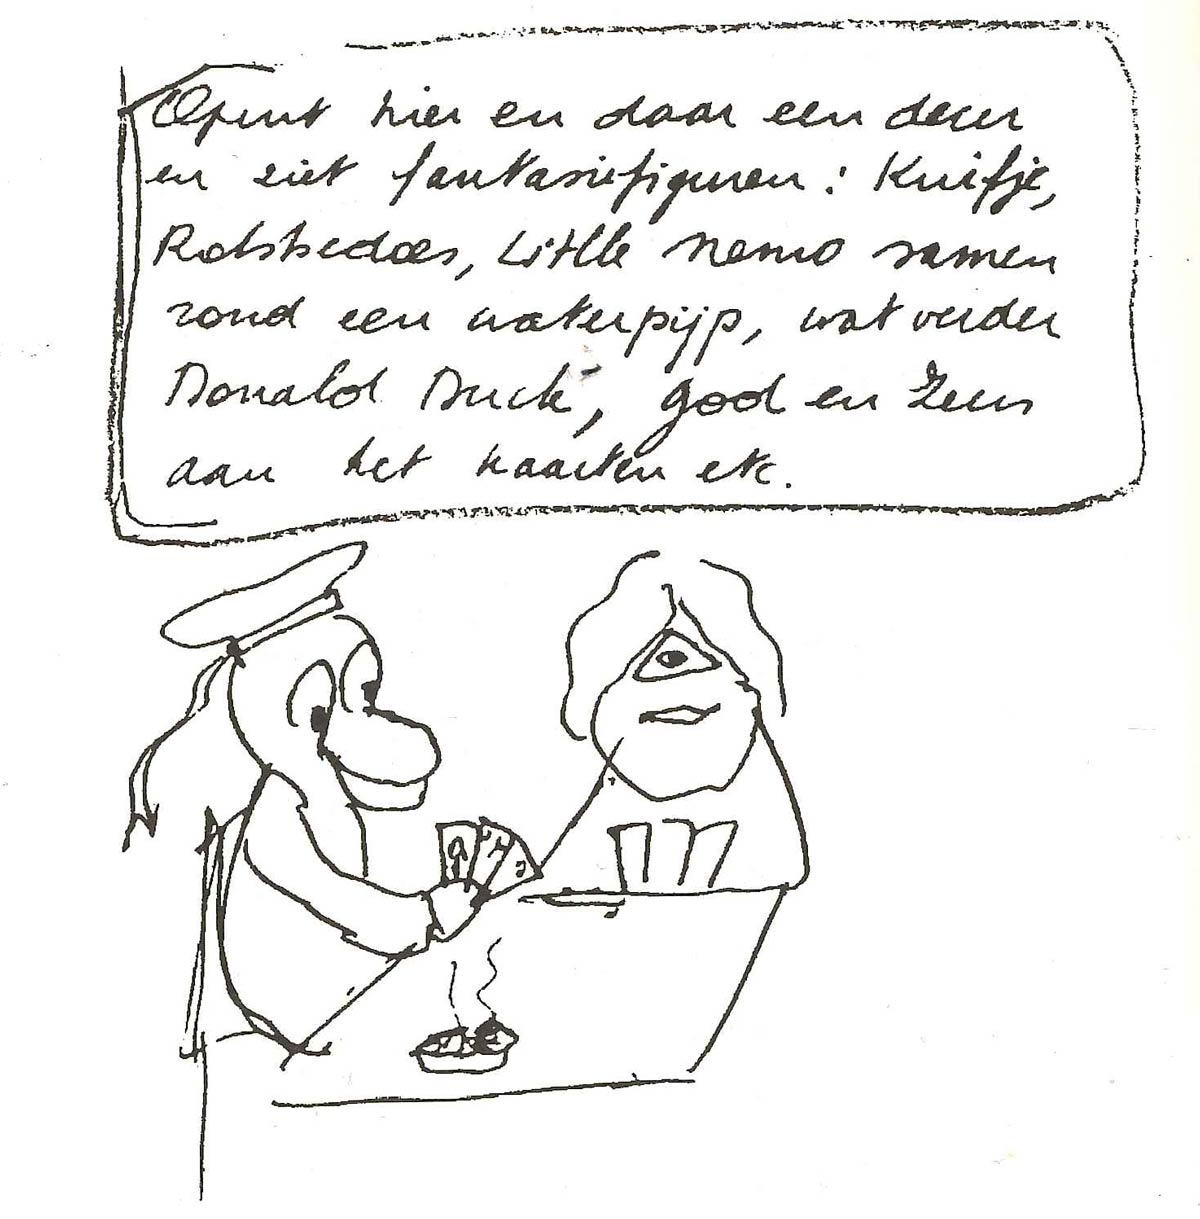 Opent hier en daar een deur
en ziet fantasiefiguren: Kuifje,
Robbedoes, Little Nemo samen
rond een waterpijp, wat verder
Donald Duck, god en Zeus
aan het kaarten etc.